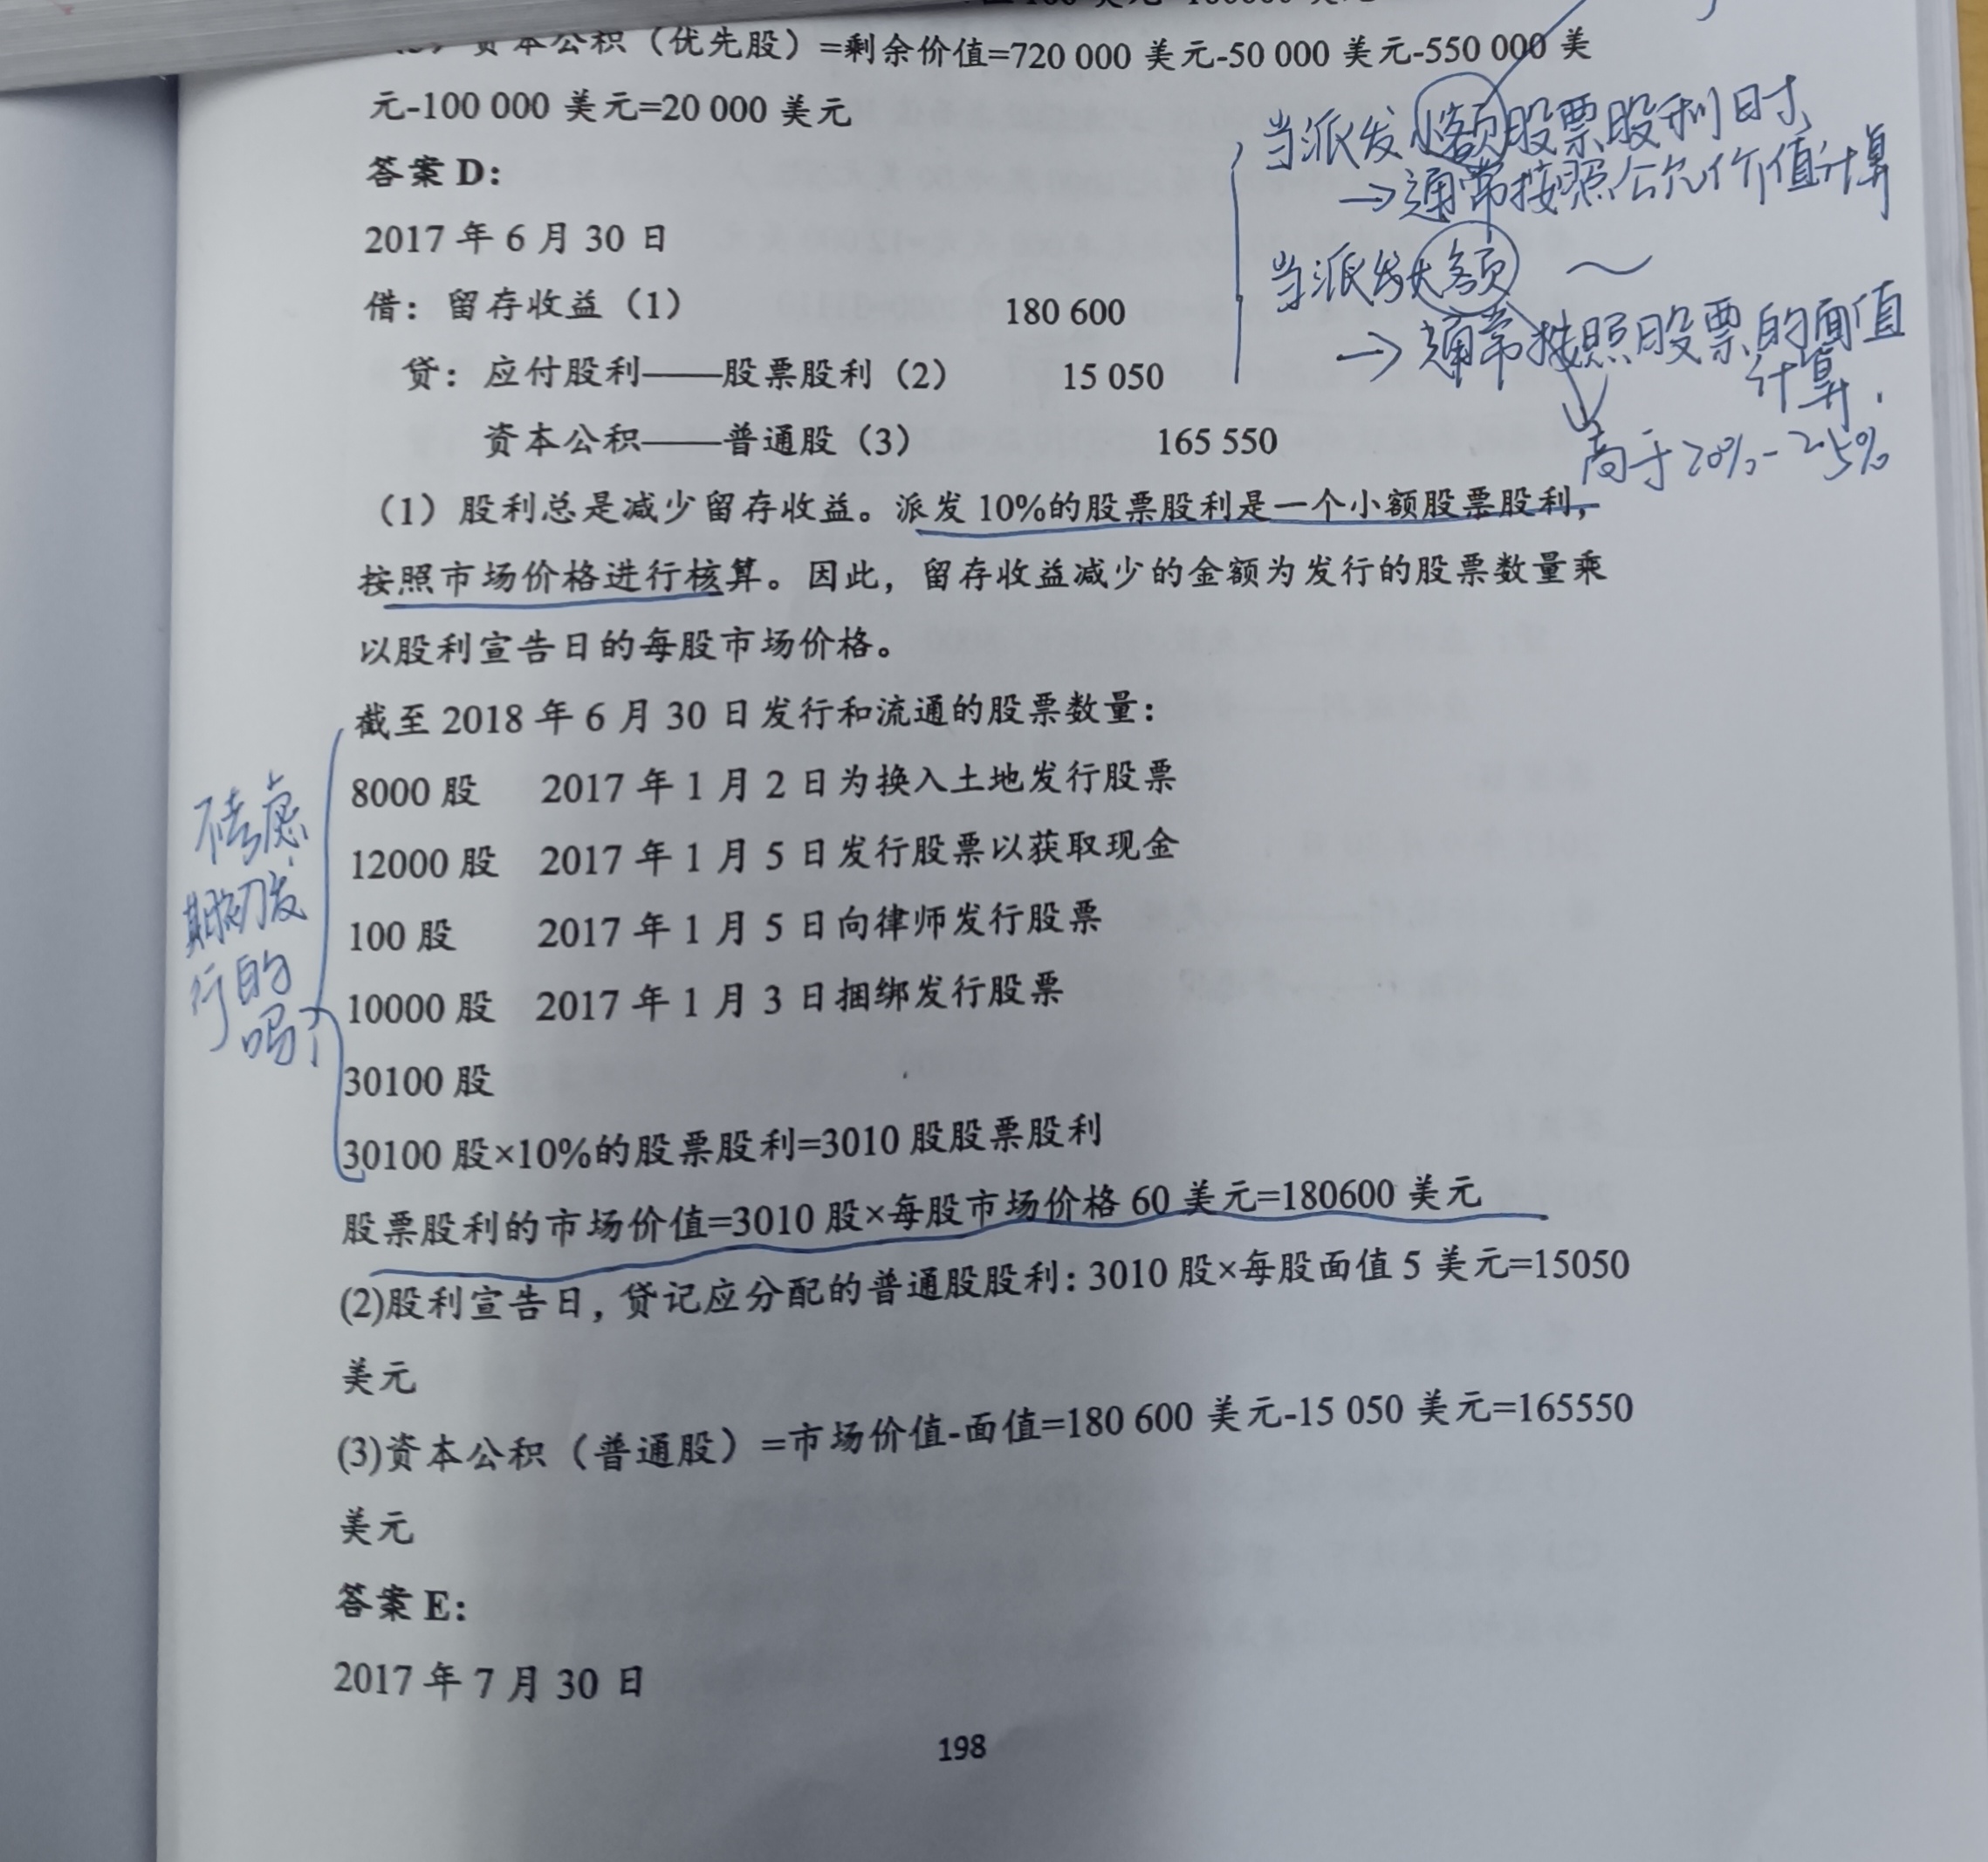 资本公积（优先股）=剩余价值=720 000 美元-50 000 美元-550 000 美
元-100 000 美元=20 000 美元
答案 D：
2017 年 6 月 30 日
借：留存收益（1） 180 600
贷：应付股利——股票股利（2） 15 050
资本公积——普通股（3） 165 550
（1）股利总是减少留存收益。派发 10%的股票股利是一个小额股票股利，
按照市场价格进行核算。因此，留存收益减少的金额为发行的股票数量乘
以股利宣告日的每股市场价格。
截至 2018 年 6 月 30 日发行和流通的股票数量：
8000 股 2017 年 1 月 2 日为换入土地发行股票
12000 股 2017 年 1 月 5 日发行股票以获取现金
100 股 2017 年 1 月 5 日向律师发行股票
10000 股 2017 年 1 月 3 日捆绑发行股票
30100 股
30100 股×10%的股票股利=3010 股股票股利
股票股利的市场价值=3010 股×每股市场价格 60 美元=180600 美元
(2)股利宣告日，贷记应分配的普通股股利：3010 股×每股面值 5 美元=15050
美元
(3)资本公积（普通股）=市场价值-面值=180 600 美元-15 050 美元=165550
美元
答案 E：
2017 年 7 月 30 日
198
当派发小额股票股利时、
→通常按照公允价值计算
当派发大额 ～
→通常按照股票的面值
计算.
高于20%-25%
不考虑
期初发
行的
吗?